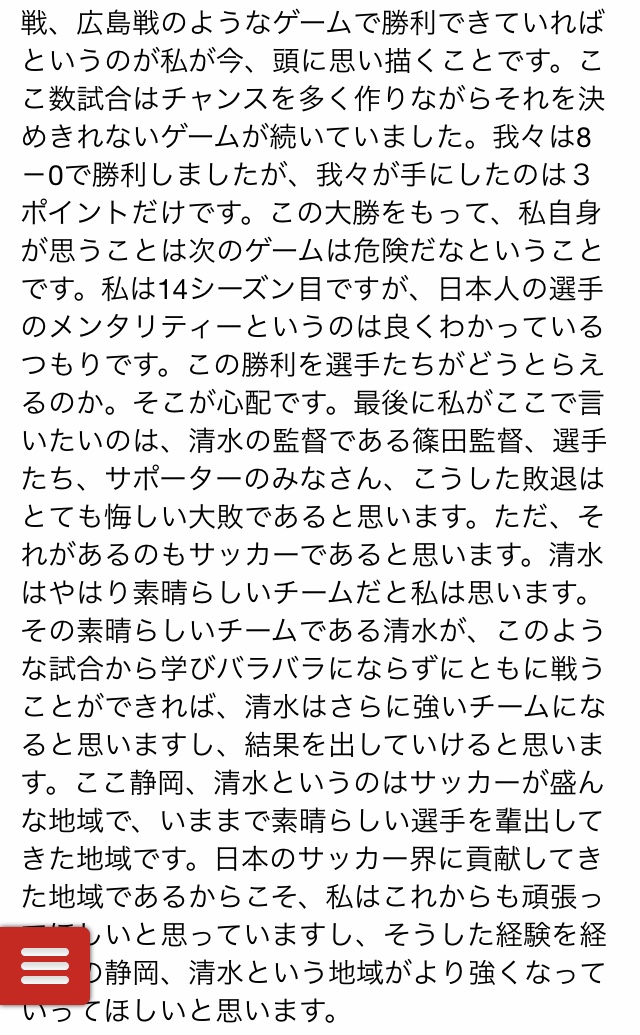 戦、広島戦のようなゲームで勝利できていれば
というのが私が今、頭に思い描くことです。こ
こ数試合はチャンスを多く作りながらそれを決
めきれないゲームが続いていました。我々は8
－0で勝利しましたが、我々が手にしたのは３
ポイントだけです。この大勝をもって、私自身
が思うことは次のゲームは危険だなということ
です。私は14シーズン目ですが、日本人の選手
のメンタリティーというのは良くわかっている
つもりです。この勝利を選手たちがどうとらえ
るのか。そこが心配です。最後に私がここで言
いたいのは、清水の監督である篠田監督、選手
たち、サポーターのみなさん、こうした敗退は
とても悔しい大敗であると思います。ただ、そ
れがあるのもサッカーであると思います。清水
はやはり素晴らしいチームだと私は思います。
その素晴らしいチームである清水が、このよう
な試合から学びバラバラにならずにともに戦う
ことができれば、清水はさらに強いチームにな
ると思いますし、結果を出していけると思いま
す。ここ静岡、清水というのはサッカーが盛ん
な地域で、いままで素晴らしい選手を輩出して
きた地域です。日本のサッカー界に貢献してき
た地域であるからこそ、私はこれからも頑張っ
てほしいと思っていますし、そうした経験を経
の静岡、清水という地域がより強くなって
いってほしいと思います。